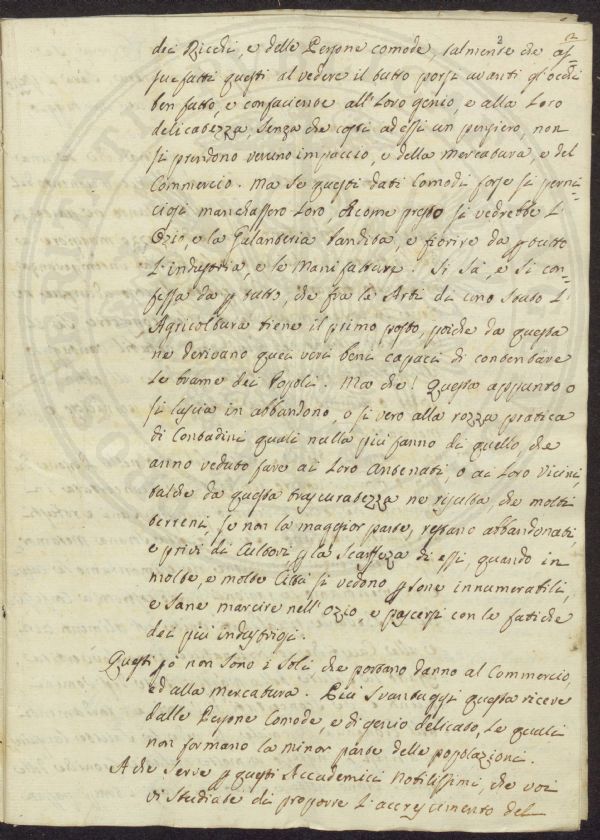 2
dei Ricchi, e delle Persone comode, talmente che as=
suefatti questi al vedere il tutto porsi avanti gl'occhi
ben fatto, e confaciente all'Loro genio, e alla Loro
delicatezza, senza che costi ad essi un pensiero, non
si prendono veruno impaccio, e della Mercatura, e del
Commercio. Ma se questi dati Comodi forse si perni
ciosi manchassero Loro, o come presto si vedrebbe l'
Ozio, e la Galanteria bandita, e fiorire da p tutto
l'industria, e le Manifatture. Si sà, e si con=
fessa da p tutto, che fra le Arti di uno Stato l'
Agricoltura tiene il primo posto, poiche da questa
ne derivano quei veri beni capaci di contentare
le brame dei Popoli. Ma che! Questa appunto o
si lascia in abbandono, o si vero alla rozza pratica
di Contadini quali nulla più fanno di quello, che
anno veduto fare ai Loro Antenati, o ai Loro Vicini,
talche da questa trascuratezza ne risulta, che molti
terreni, se non la maggior parte, restano abbandonati,
e privi di Cultori p la Scarsezza di essi, quando in
molte, e molte Città si vedono psone innumerabili,
e sane marcire nell'Ozio e pascersi con le fatiche
dei più industriosi.
Questi pò non sono i soli, che portano danno al Commercio,
ed alla mercatura. Più Svantaggi questa riceve
dalle Persone Comode, e di genio delicato, le quali
non formano la minor parte delle popolazioni.
A che serve p questi Accademici Nobilissimi, che voi
vi studiate di proporre l'accrescimento del